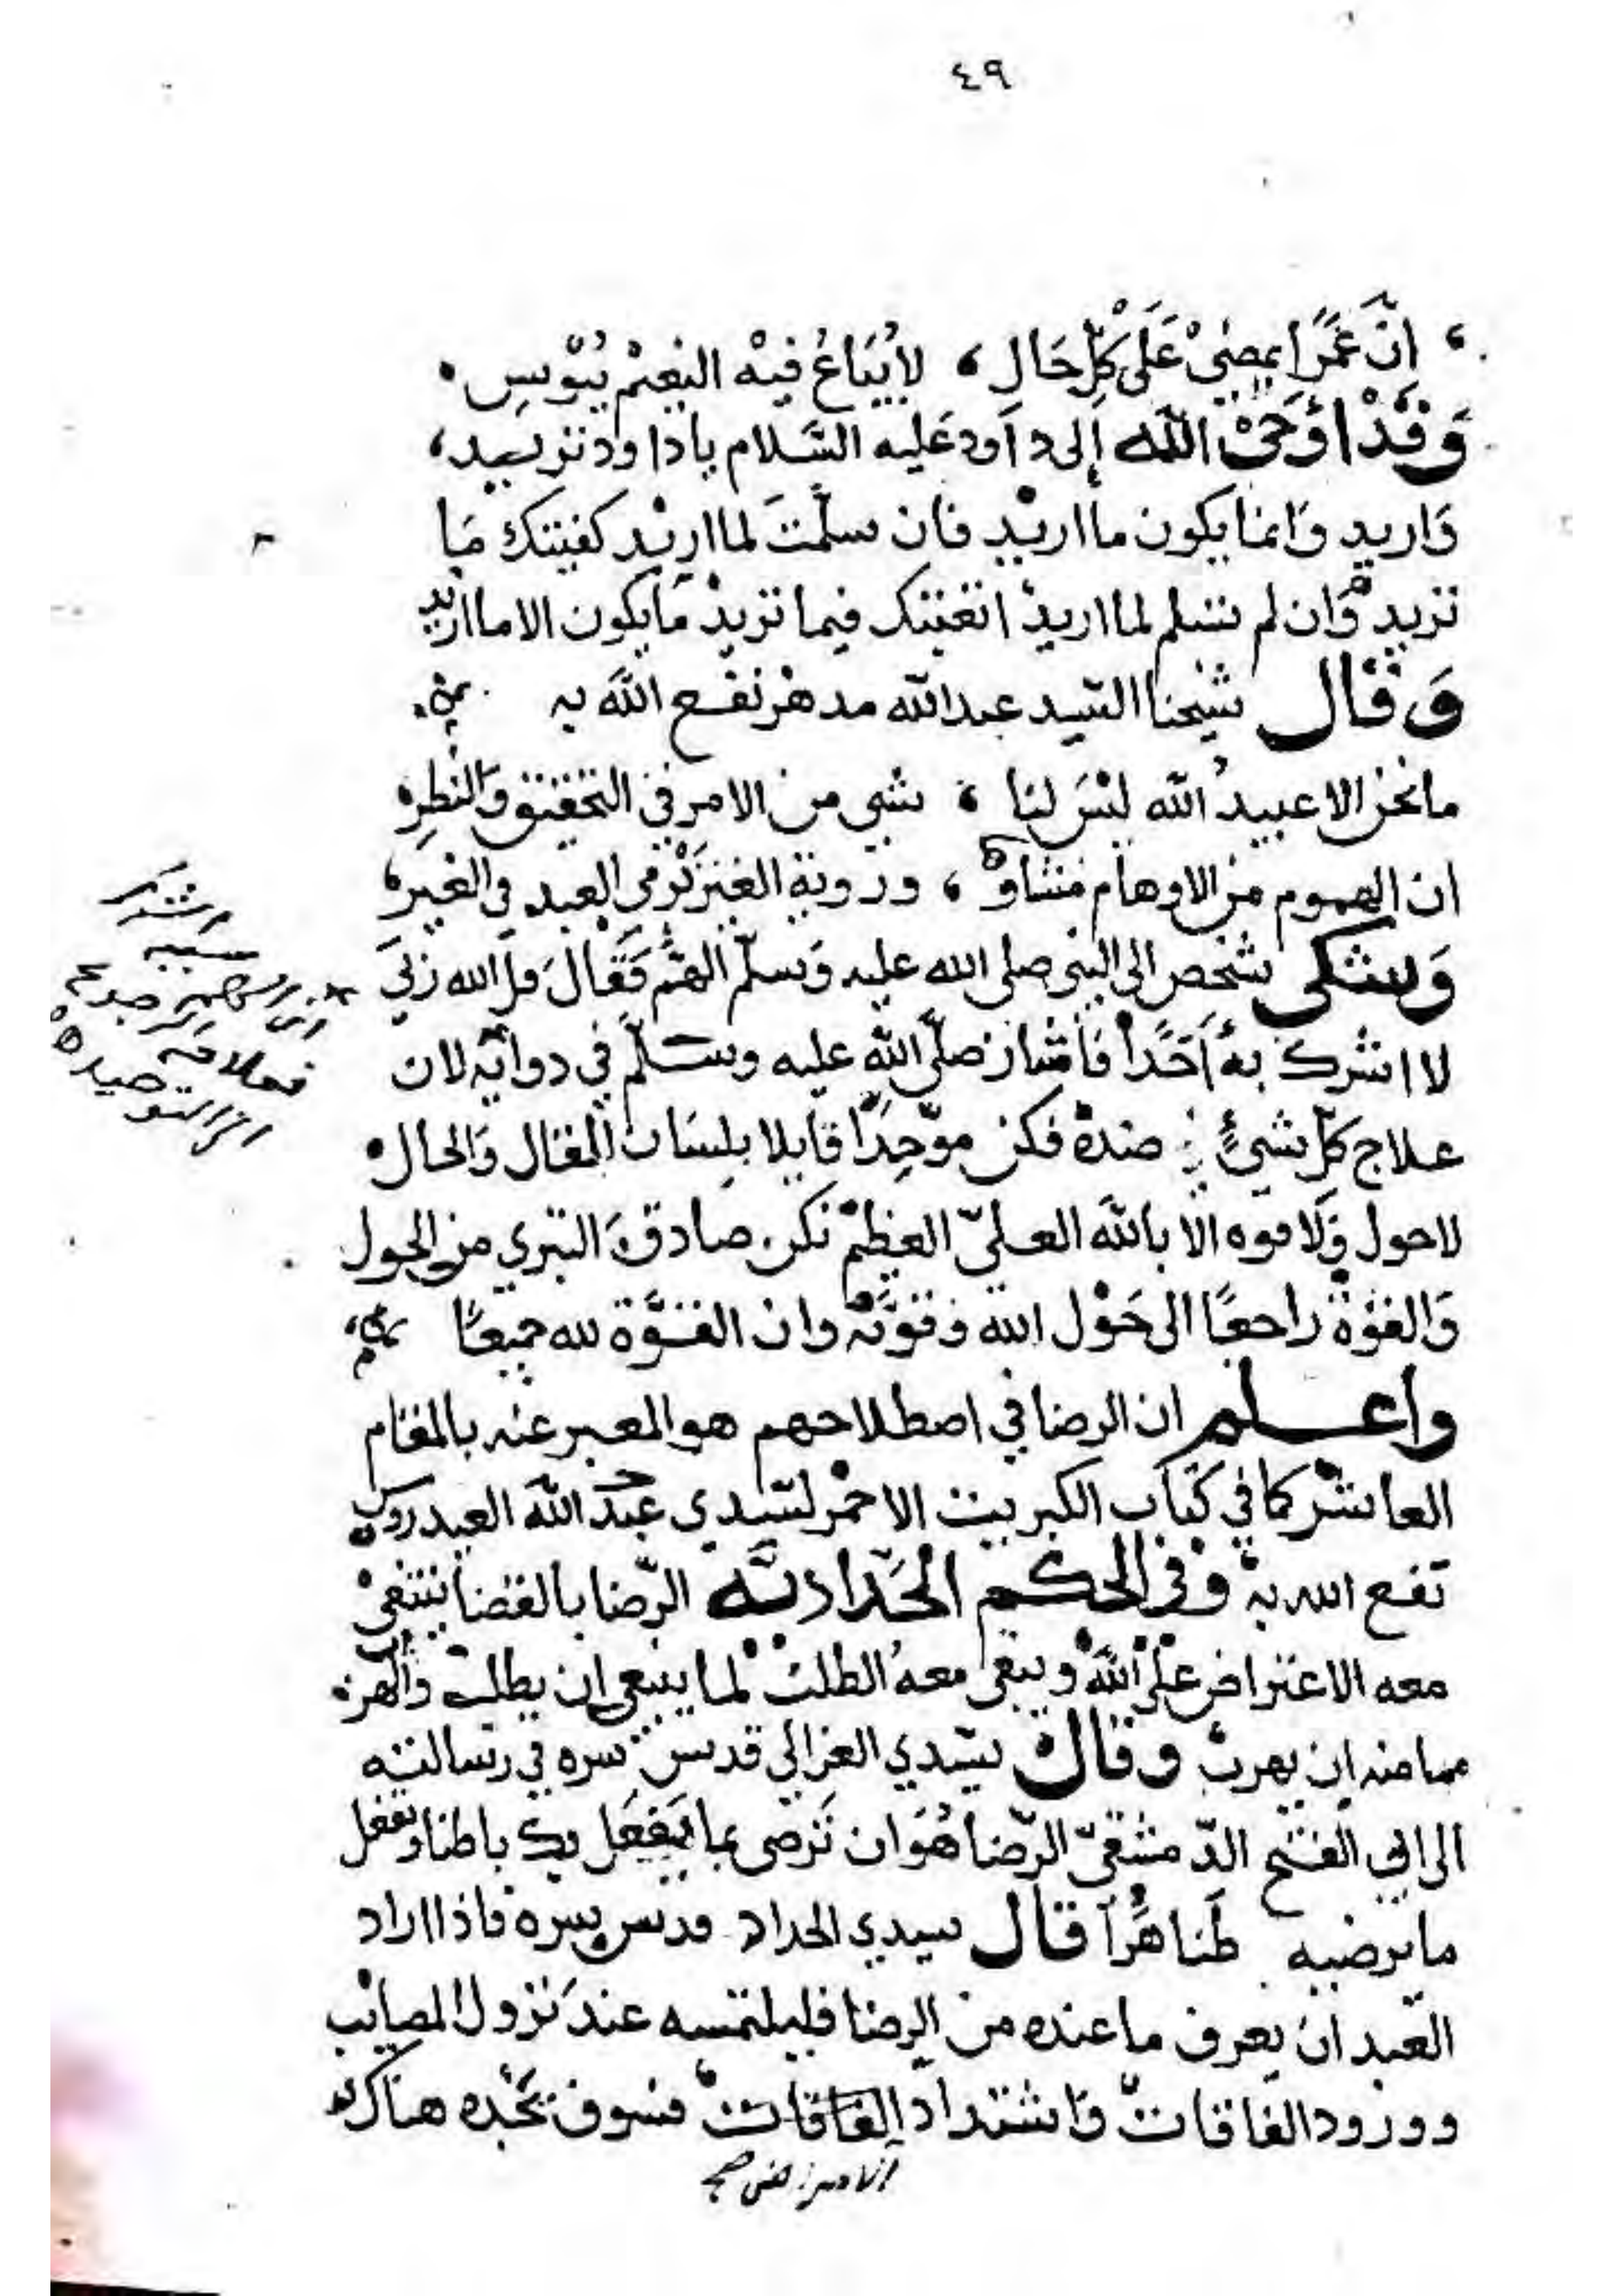 ٤٩
، اِنَّ عُمْرًا يمضيْ عَلَىْ كلِّ حَالٍ ، لا يُبَاعُ فِيْهِ النعِيْمُ بُبُوْسِ .
وَقَدْ اَوْحَىْ الله إلى داود عَليه السَّلام يا داود تريد،
وَاريد وَانما يكون ما اريد فان سلّمتَ لما اريد كفيتك مَا
تريد وَان لم تسلم لما اريد اتعبتك فيما تريد مَا يكون الا ما اريد
وَقَال شيخنا السّيد عبد الله مدهر نفع الله به
ما نحن الا عبيدُ الله ليْسَ لنا ، شيء من الامر في التحقيق وَالنظر
ان الهموم من الاوهام منشاؤها ، ورؤية الغير تَرْمي العبد في الغير،
وَشكى شخص الى النبي صلى الله عليه وَسلّم الهمّ فَقَالَ قل الله ربي
لا اشرك به اَحَدًا فاشار صلّى الله عليه وسلّم في دوائه لان
علاج كلّ شيءٍ ضده فكن موّحِدًا قايلا بلسَان المقال وَالحال
لا حول وَلا قوه الا بالله العليّ العظيمْ تكن صادق التبري من الحول
وَالقوّة راجعًا الى حَوْل الله وقوّته وان القوّة لله جميعًا
واعلم ان الرضا في اصطلاحهم هو المعبر عنه بالمقام
العاشر كما في كتاب الكبريت الاحمر لسّيدي عبد الله العيدروس
نفع الله به وفي الحكم الحَدّاديّه الرّضا بالقضا ينتفي
معه الاعتراض على الله ويبقى معهُ الطلبُ لما ينبغي ان يطلب وَالهرب
مما منه ان يهرب وقال سيّدي الغزالي قدس سره في رسالته
الى ابي الفتح الدّمشقيّ الرّضا هُوَ ان تَرْضى بما يَفعَل بك باطنا وتفعل
ما يرضيه ظَاهرًا قال سيدي الحداد قدس سره فاذا اراد
العَبد ان يعرف ما عنده من الرضا فليلتمسه عندَ نزول المصايب
وورود الفاقات وَاشتداد الفاقات فسوف يجْده هناك
الامراض صح
الشرك
سببه
فعلاقه
التوحيد